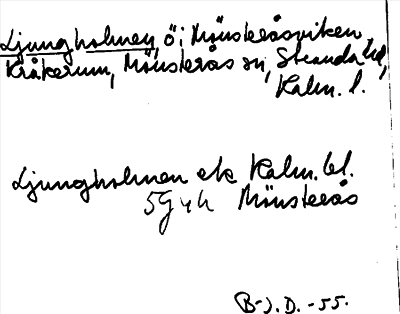 Ljungholmen, ö i Mönsteråsviken,
Kråkerum, Mönsterås sn, Stranda hd,
Kalm. l.
Ljungholmen ek Kalm. bl.
5G4h Mönsterås
B-J. D. -55.